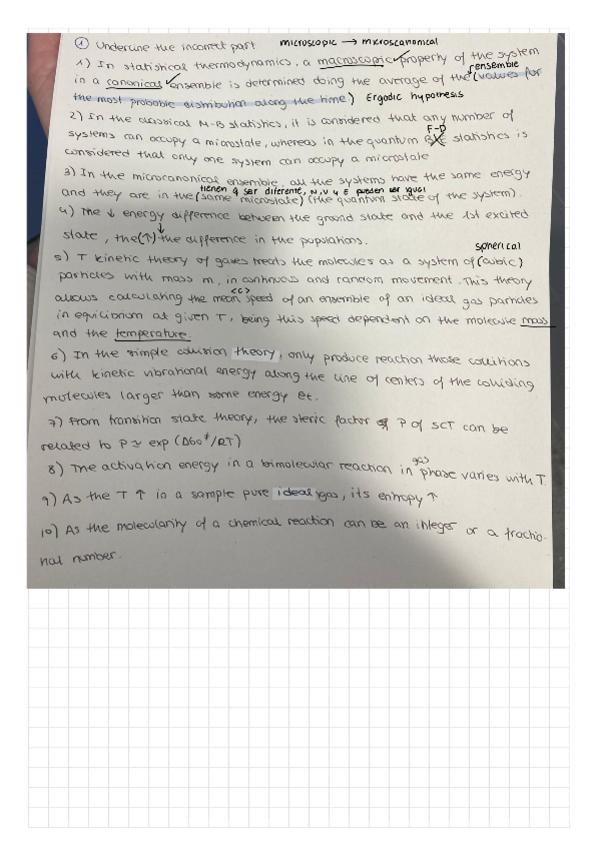 ① Underline the incorrect part microscopic → microcanonical
1) In statistical thermodynamics, a macroscopic property of the system
ensemble
in a canonical ensemble is determined doing the average of the (values for
the most probable distribution along the time) Ergodic hypothesis
2) In the classical M-B statistics, it is considered that any number of
F-D
systems can occupy a microstate, whereas in the quantum statistics is
considered that only one system can occupy a microstate
3) In the microcanonical ensemble, all the systems have the same energy
tienen q ser diferente, N, V y E pueden ser igual
and they are in the (same microstate) (the quantum state of the system).
4) The ↓ energy difference between the ground state and the 1st excited
↓
state, the (↑) the difference in the populations.
spherical
5) T kinetic theory of gases treats the molecules as a system of (cubic)
particles with mass m, in continuous and random movement. This theory
<c>
allows calculating the mean speed of an ensemble of an ideal gas particles
in equilibrium at given T, being this speed dependent on the molecule mass
and the temperature.
6) In the simple collision theory, only produce reaction those collitions
with kinetic vibrational energy along the line of centers of the colliding
molecules larger than some energy εc.
7) From transition state theory, the steric factor P of SCT can be
related to P ≃ exp (ΔG0‡/RT)
gas
8) The activation energy in a bimolecular reaction in phase varies with T.
9) As the T ↑ in a sample pure ideal gas, its entropy ↑
10) As the molecularity of a chemical reaction can be an integer or a fractio-
nal number.